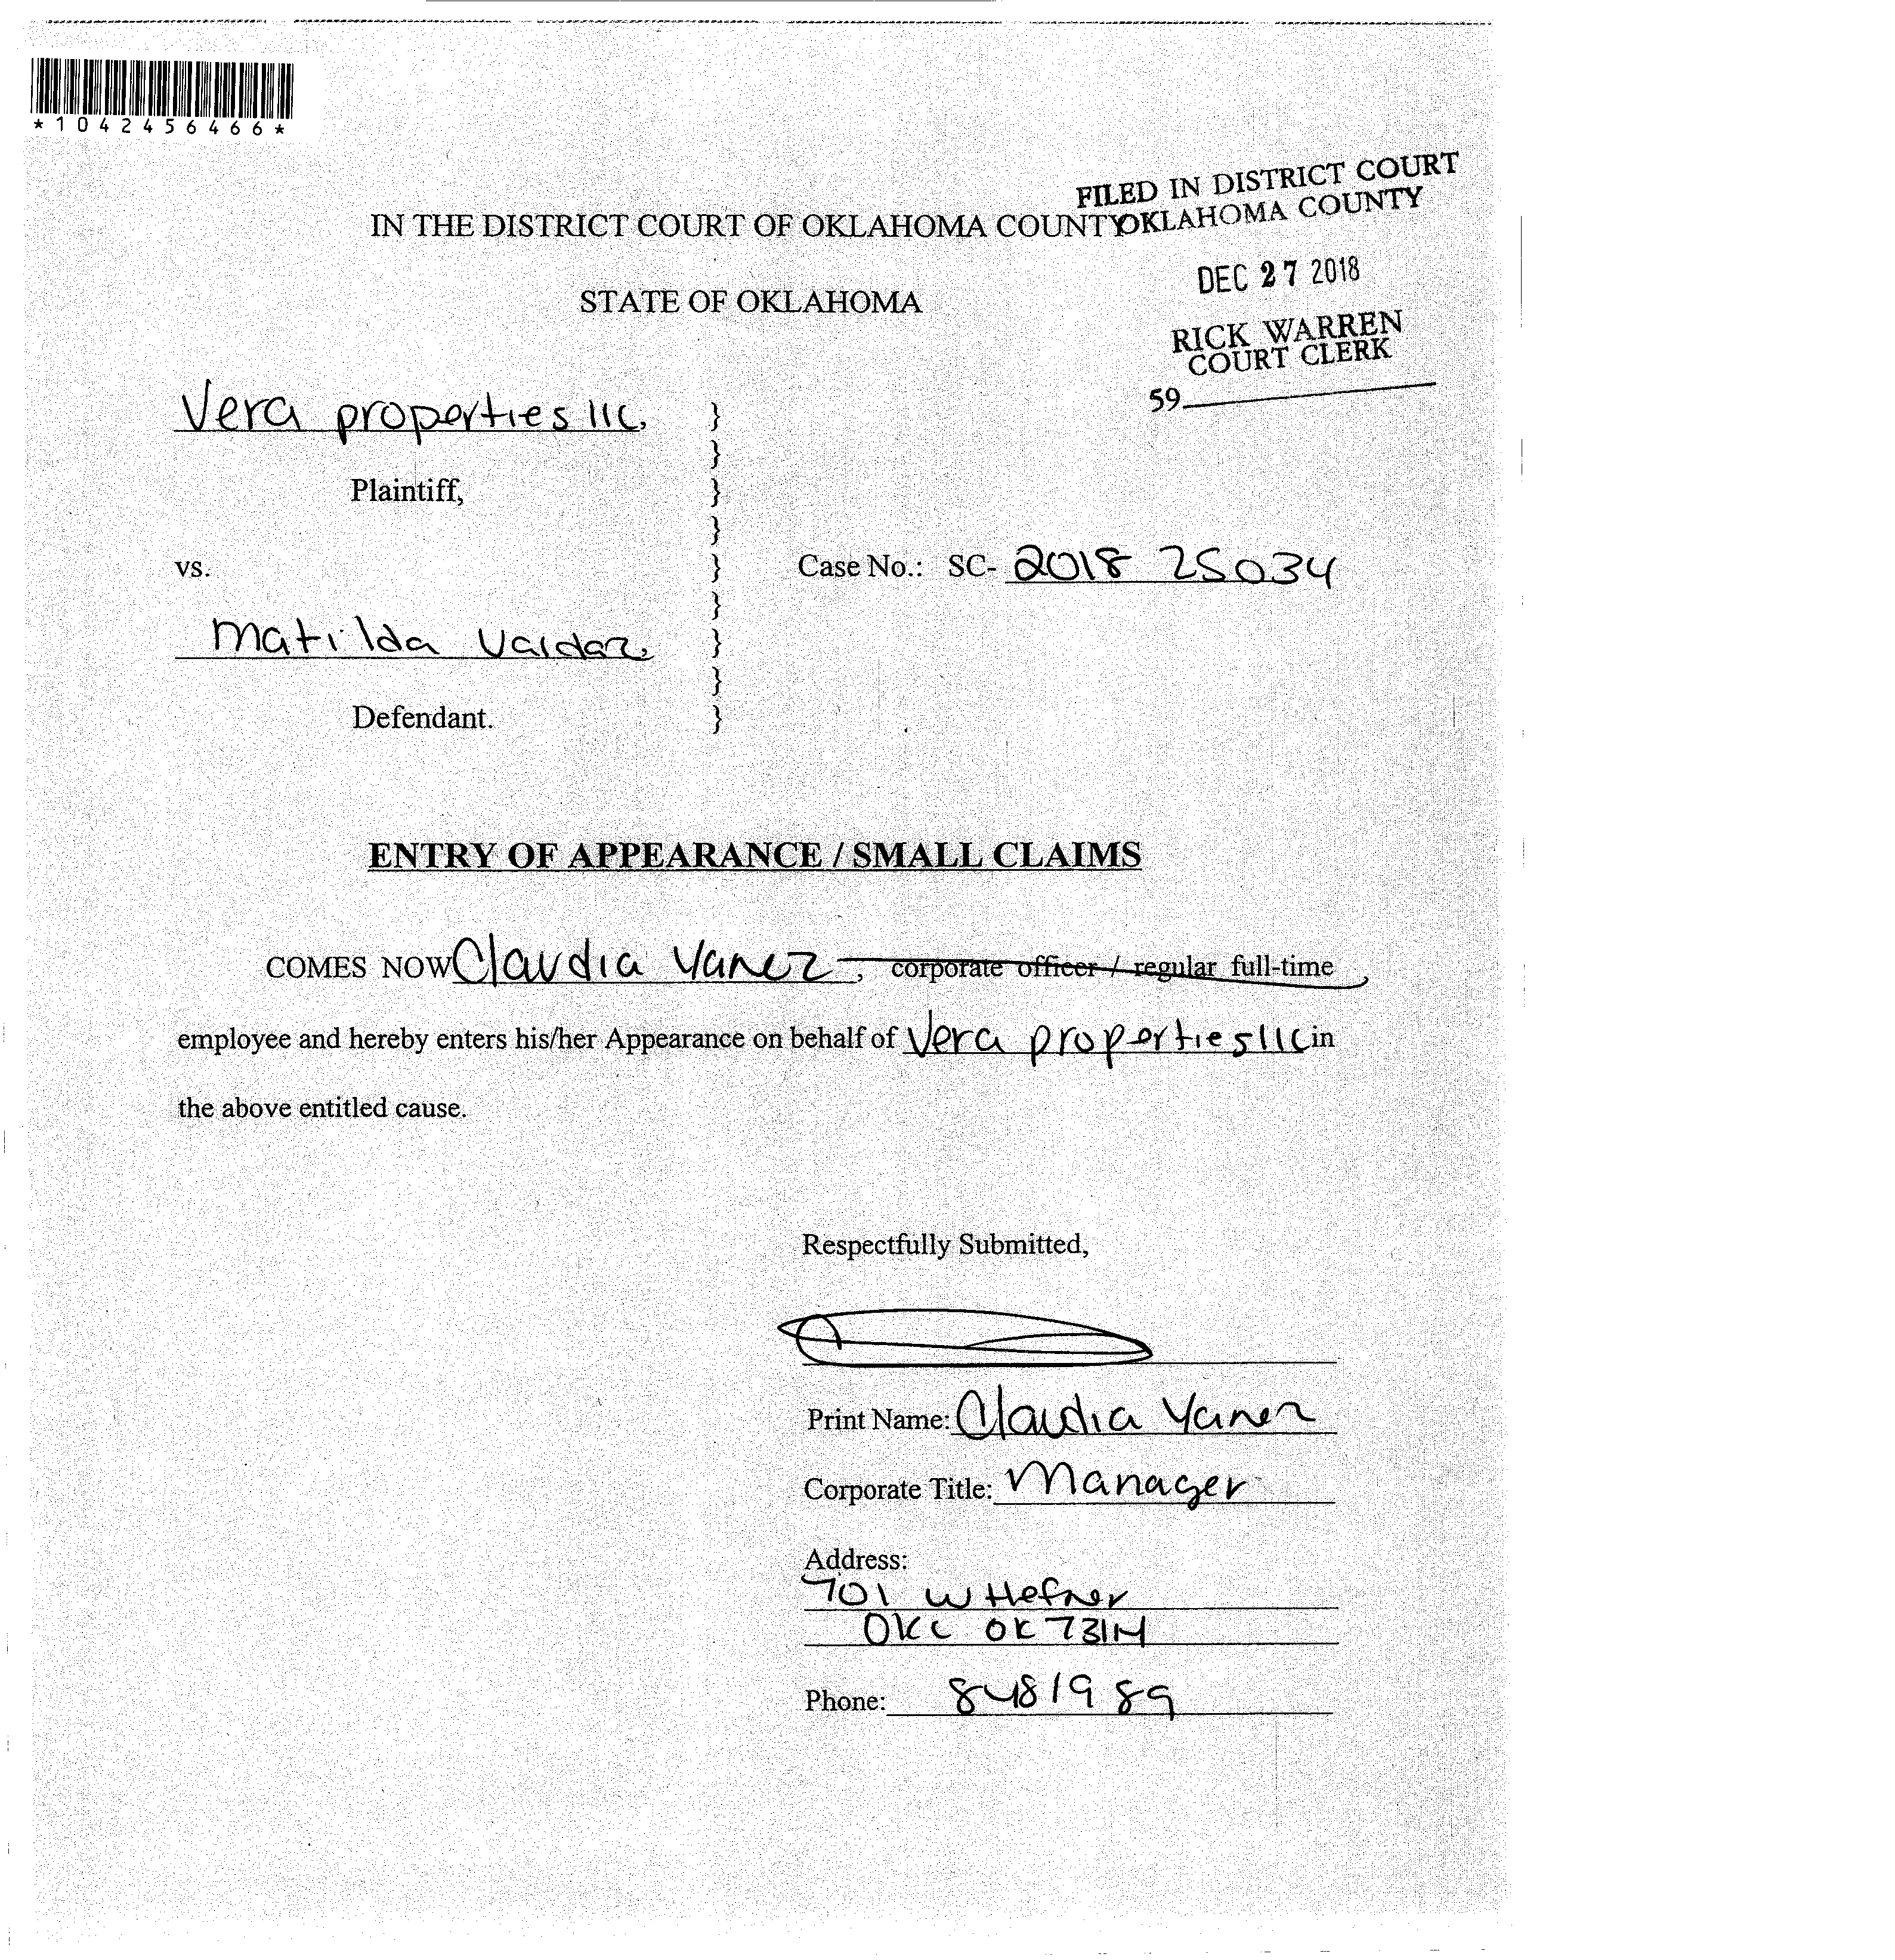 *1042456466*
FILED IN DISTRICT COURT
OKLAHOMA COUNTY
IN THE DISTRICT COURT OF OKLAHOMA COUNTY
DEC 27 2018
STATE OF OKLAHOMA
RICK WARREN
COURT CLERK
59
Vera properties llc,
}
}
Plaintiff,
}
}
vs.
}
Case No.: SC- 2018 25034
}
Matilda Valdaz,
}
}
Defendant.
}
ENTRY OF APPEARANCE / SMALL CLAIMS
COMES NOW Claudia Yanez, corporate officer / regular full-time
employee and hereby enters his/her Appearance on behalf of Vera properties llc in
the above entitled cause.
Respectfully Submitted,
Print Name: Claudia Yanez
Corporate Title: Manager
Address:
701 W Hefner
OKC OK 73114
Phone: 8481989